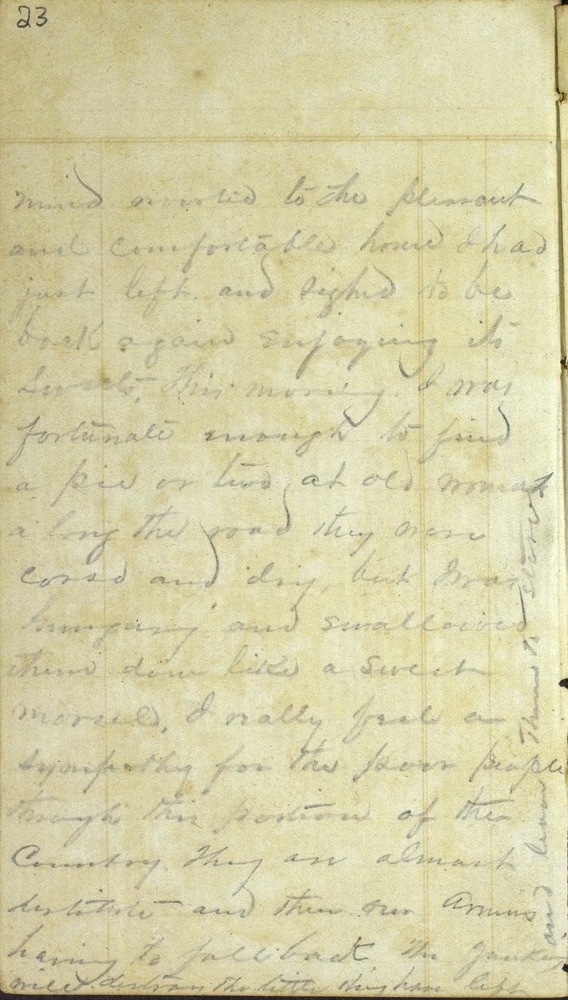 23
mind reverted to the pleasant
and comfortable home I had
just left and sighed to be
back again enjoying its
sweets, This morning I was
fortunate enough to find
a pie or two at old
a long the road they were
and dry but I was
hungary and swallowed
them down like a sweet
morsel, I really feel a
sympathy for the poor people
through this portion of the
Country They are almost
destitute and then our Armies
having to fall back the Yankeys
will destroy the little they have left
and leave them to starve